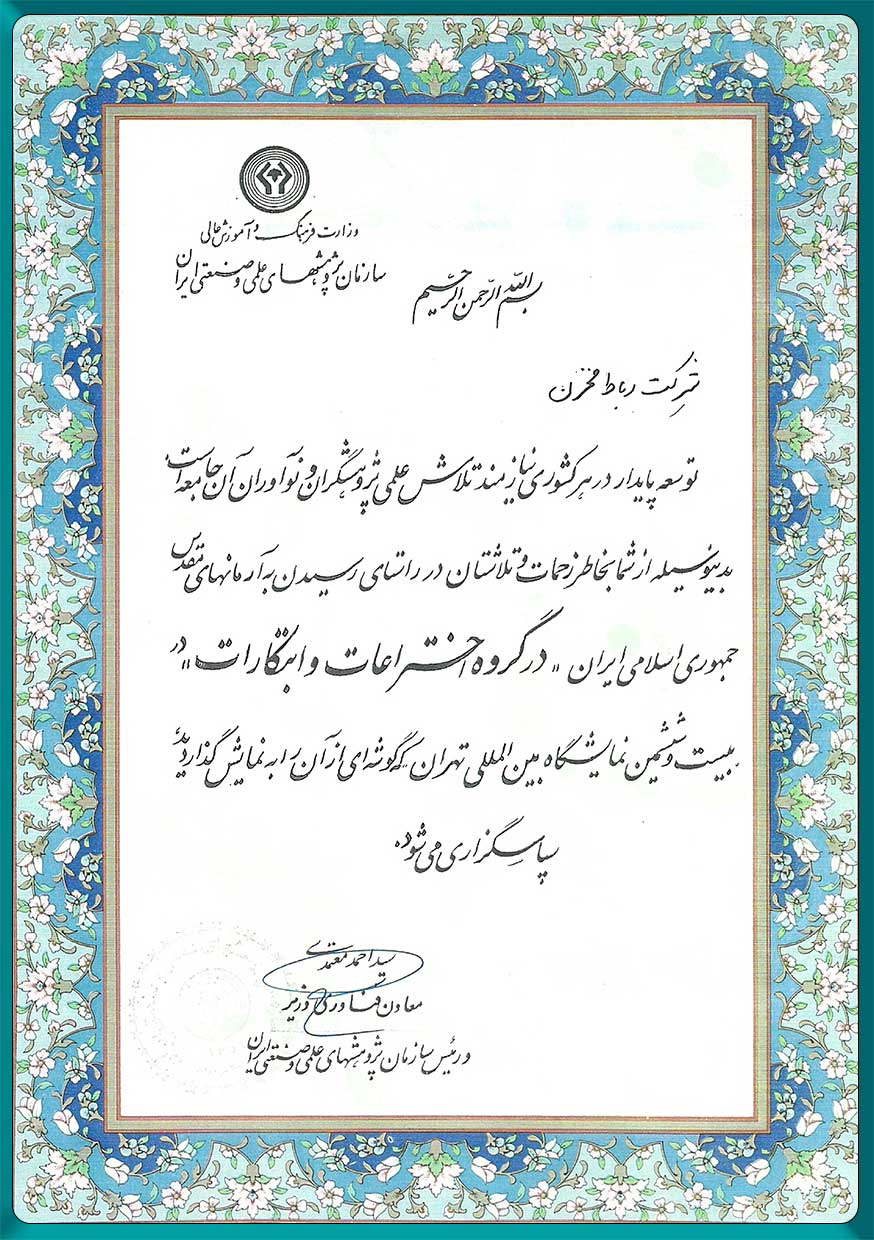 وزارت فرهنگ و آموزش عالی
سازمان پژوهشهای علمی و صنعتی ایران
بسم الله الرحمن الرحیم
شرکت رباط مخزن
توسعه پایدار در هر کشوری نیازمند تلاش علمی پژوهشگران و نوآوران آن جامعه است
بدینوسیله از شما بخاطر زحمات و تلاشتان در راستای رسیدن به آرمانهای مقدس
جمهوری اسلامی ایران "در گروه اختراعات و ابتکارات" در
بیست و ششمین نمایشگاه بین المللی تهران که گوشه ای از آن را به نمایش گذاردید
سپاسگزاری می شود.
سید احمد معتمدی
معاون فناوری وزیر
و رئیس سازمان پژوهشهای علمی و صنعتی ایران